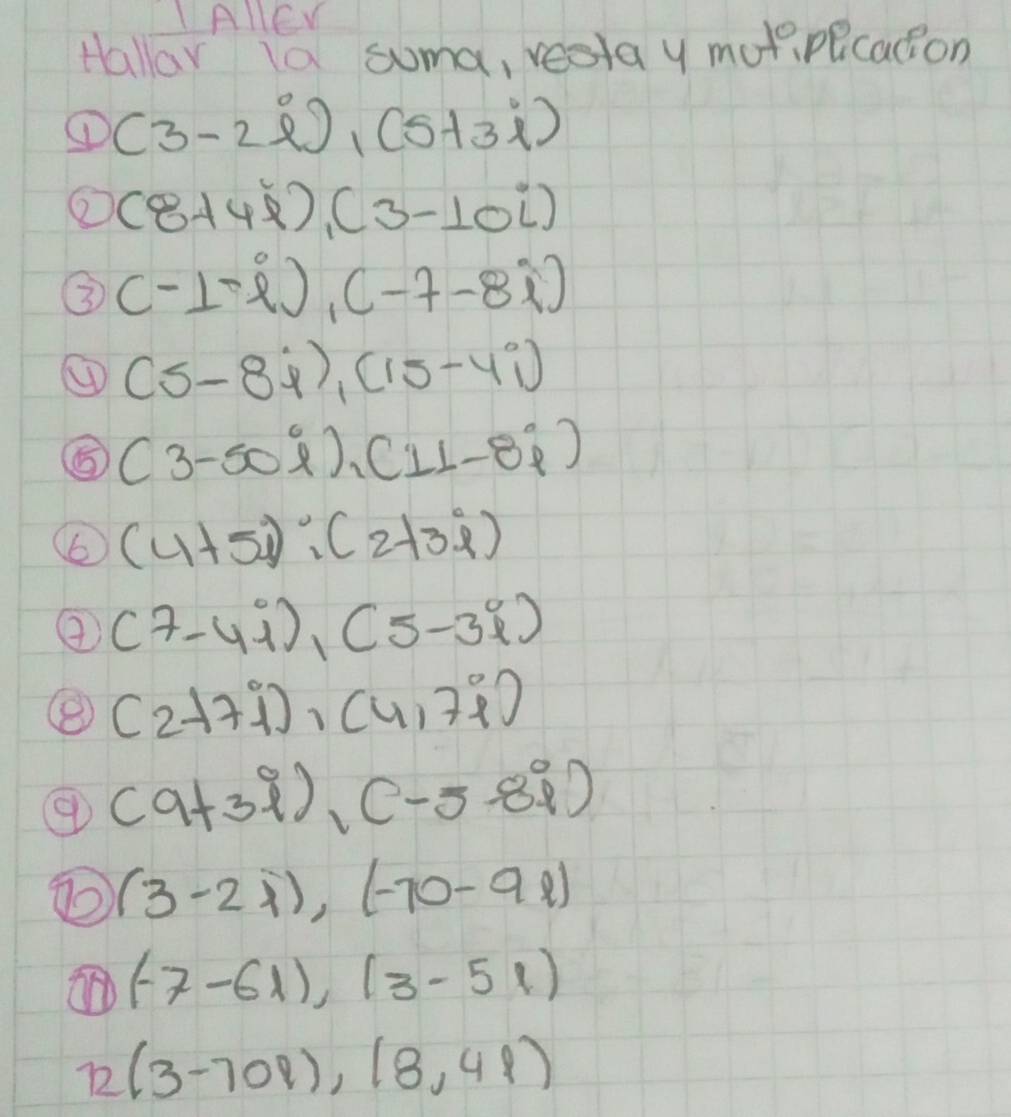 Taller
Hallar la suma, resta y mutiplicacion
① (3-2i), (5+3i)
② (8+4i), (3-10i)
③ (-1-i), (-7-8i)
④ (5-8i), (15-4i)
⑤ (3-50i), (11-8i)
⑥ (4+5i), (2+3i)
⑦ (7-4i), (5-3i)
⑧ (2+7i), (4,7i)
⑨ (9+3i), (-5-8i)
⑩ (3-2i), (-10-9i)
⑪ (-7-6i), (3-5i)
12 (3-10i), (8,4i)